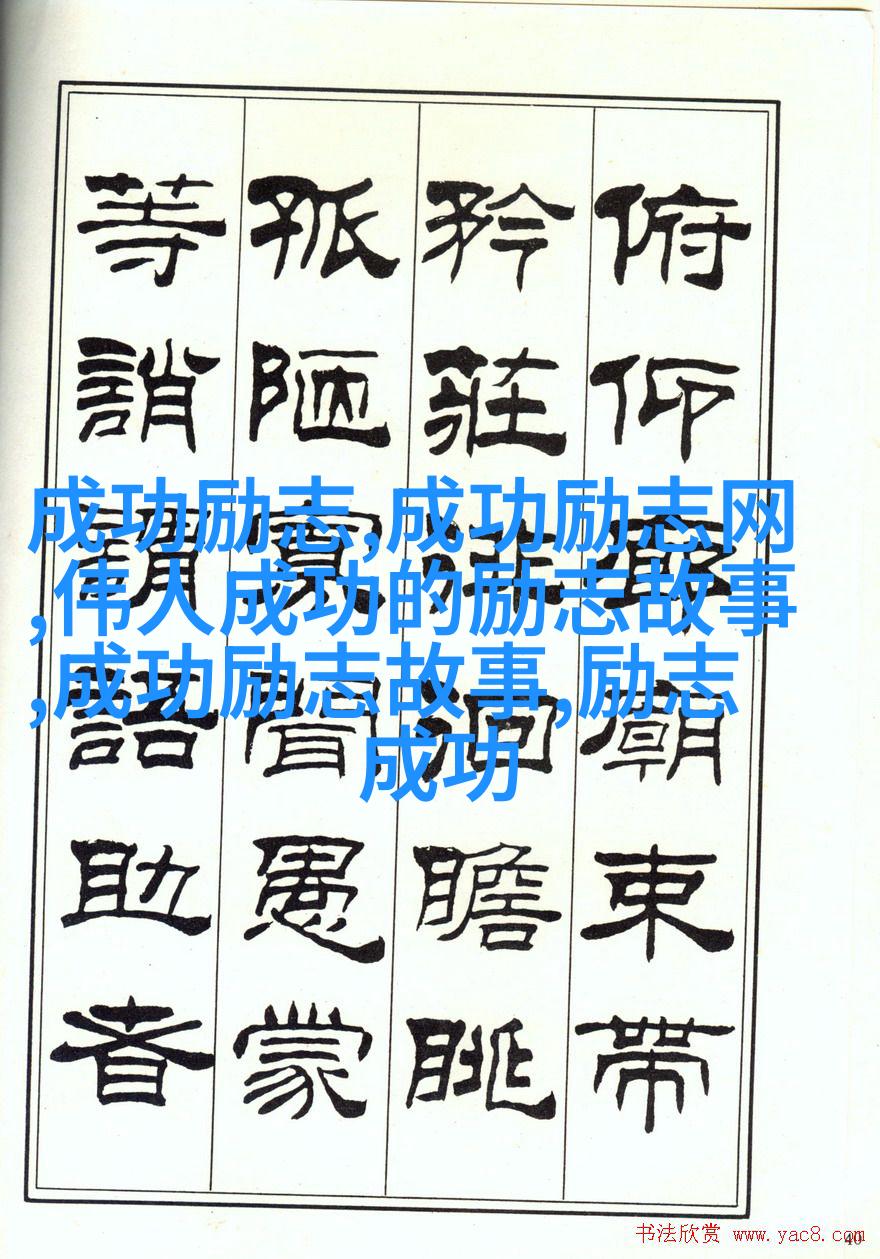 俯仰廊廟束帶
矜莊徘徊瞻眺
孤陋寡聞愚蒙
等誚謂語助者
成功励志,成功励志网
,伟人成功的励志故事
,成功励志故事,励志
成功
书法欣赏 www.yac8.com
40